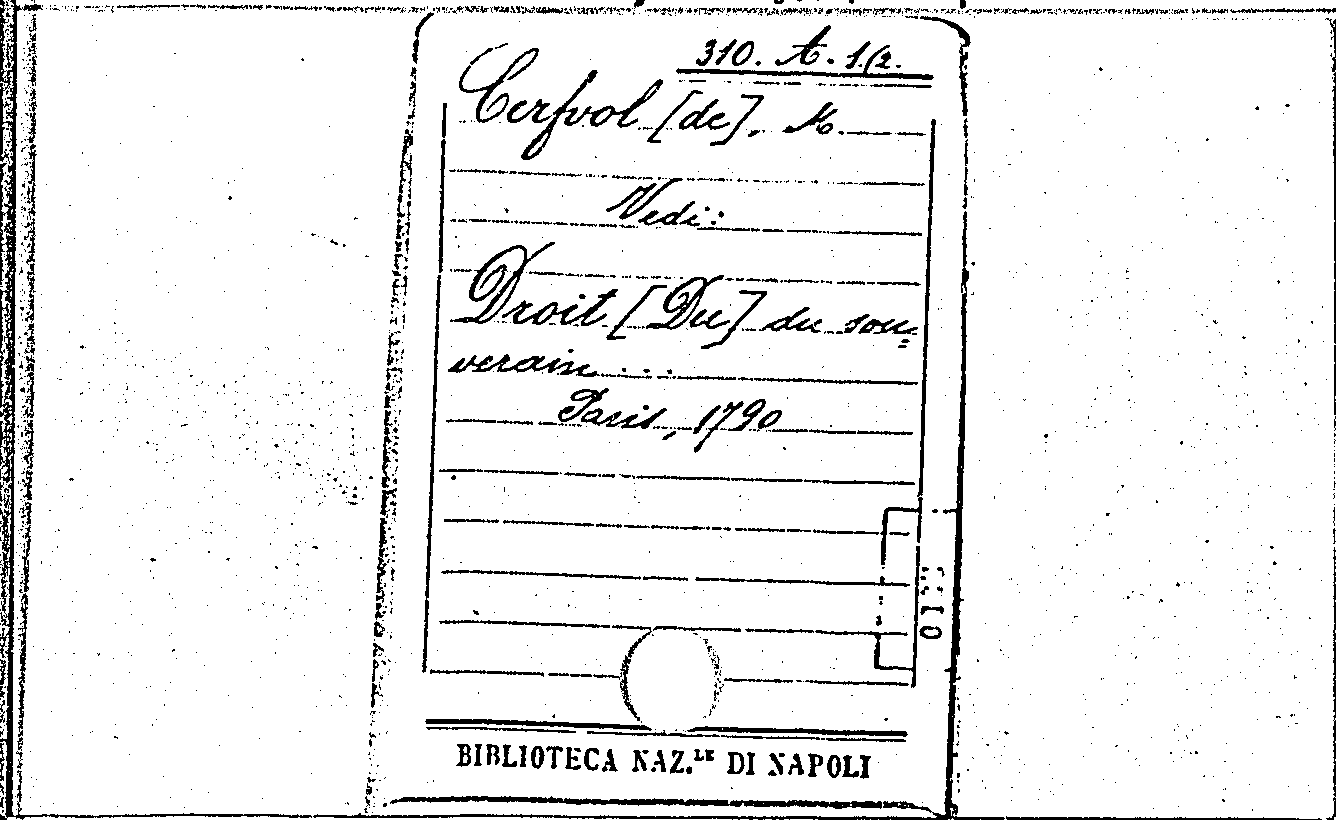 310. A. 1.(2.
Cerfvol [de], M.
Vedi:
Droit [Du] du sou=
verain ...
Paris, 1790
BIBLIOTECA NAZ.LE DI NAPOLI